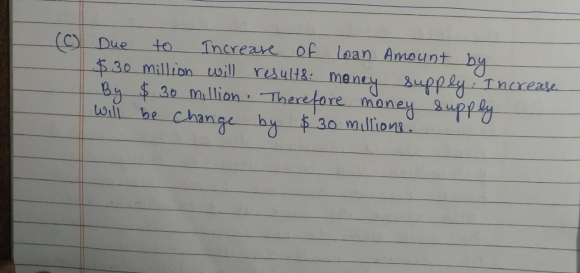 (C) Due to Increase of loan Amount by
$30 million will results: money supply. Increase
By $ 30 million. Therefore money supply
will be change by $ 30 millions.